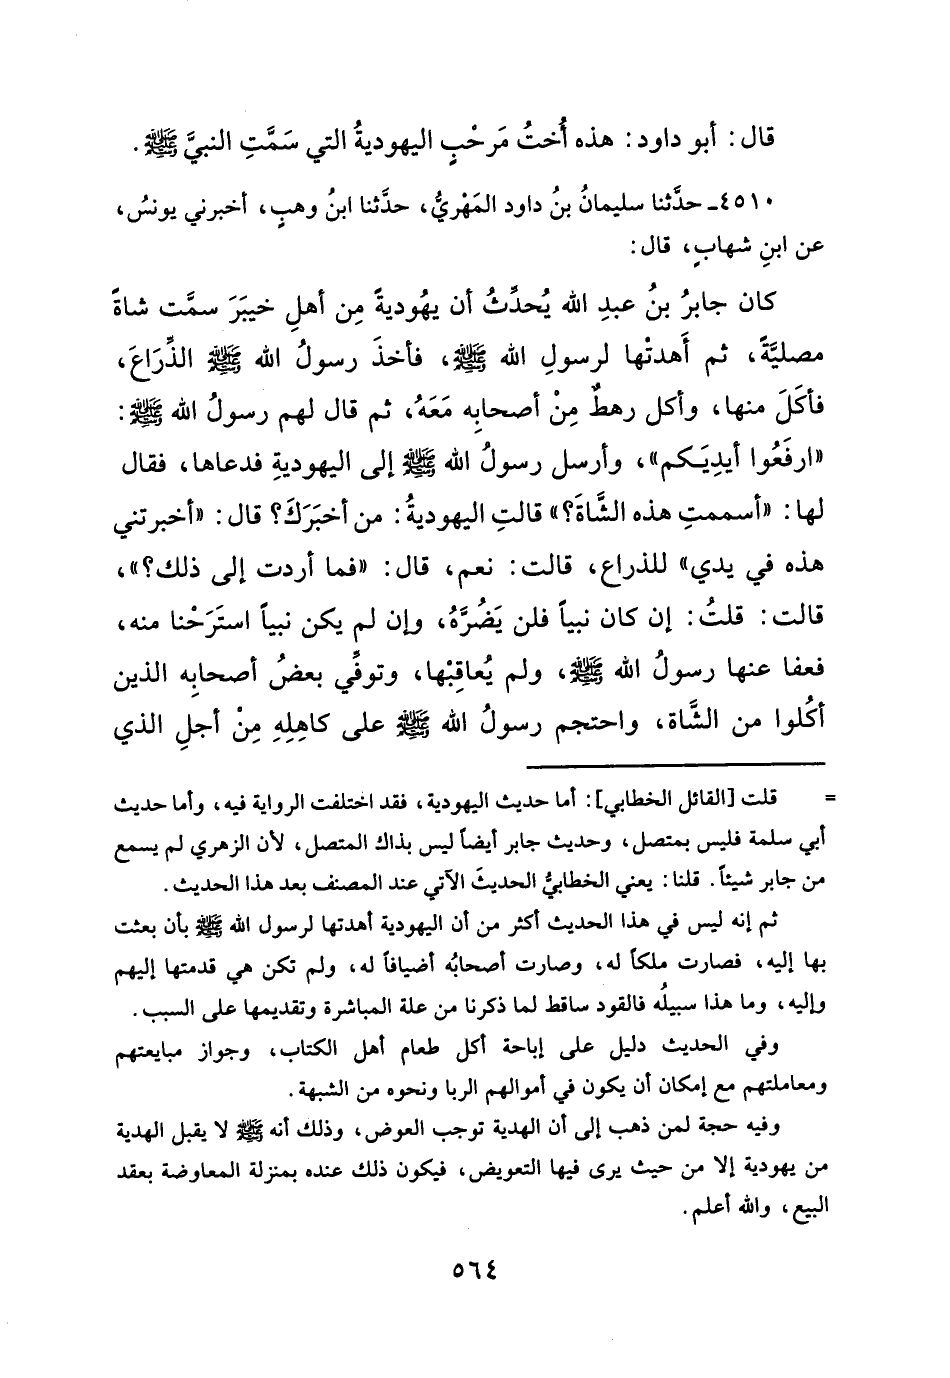 قال: أبو داود: هذه أُختُ مَرحْبٍ اليهوديةُ التي سَمَّتِ النبيَّ ﷺ.
٤٥١٠ـ حدَّثنا سليمانُ بنُ داود المَهْريُّ، حدَّثنا ابنُ وهبٍ، أخبرني يونسُ،
عن ابنِ شهابٍ، قال:
كان جابرُ بنُ عبدِ الله يُحدِّثُ أن يهُوديةً مِن أهلِ خيبَرَ سمَّت شاةً
مصليَّةً، ثم أَهدتْها لرسولِ الله ﷺ، فأخذَ رسولُ الله ﷺ الذِّرَاعَ،
فأكَلَ منها، وأكل رهطٌ مِنْ أصحابِه مَعَهُ، ثم قال لهم رسولُ الله ﷺ:
«ارفَعُوا أيدِيَكم»، وأرسل رسولُ الله ﷺ إلى اليهوديةِ فدعاها، فقال
لها: «أسممتِ هذه الشَّاةَ؟» قالتِ اليهوديةُ: من أخبَرَكَ؟ قال: «أخبرتني
هذه في يدي» للذراع، قالت: نعم، قال: «فما أردت إلى ذلك؟»،
قالت: قلتُ: إن كان نبياً فلن يَضُرَّهُ، وإن لم يكن نبياً استَرَحْنا منه،
فعفا عنها رسولُ الله ﷺ، ولم يُعاقِبْها، وتوفِّي بعضُ أصحابِه الذين
أكُلوا من الشَّاة، واحتجم رسولُ الله ﷺ على كاهِلِهِ مِنْ أجلِ الذي
= قلت [القائل الخطابي]: أما حديث اليهودية، فقد اختلفت الرواية فيه، وأما حديث
أبي سلمة فليس بمتصل، وحديث جابر أيضاً ليس بذاك المتصل، لأن الزهري لم يسمع
من جابر شيئاً. قلنا: يعني الخطابيُّ الحديثَ الآتي عند المصنف بعد هذا الحديث.
ثم إنه ليس في هذا الحديث أكثر من أن اليهودية أهدتها لرسول الله ﷺ بأن بعثت
بها إليه، فصارت ملكاً له، وصارت أصحابُه أضيافاً له، ولم تكن هي قدمتها إليهم
وإليه، وما هذا سبيلُه فالقود ساقط لما ذكرنا من علة المباشرة وتقديمها على السبب.
وفي الحديث دليل على إباحة أكل طعام أهل الكتاب، وجواز مبايعتهم
ومعاملتهم مع إمكان أن يكون في أموالهم الربا ونحوه من الشبهة.
وفيه حجة لمن ذهب إلى أن الهدية توجب العوض، وذلك أنه ﷺ لا يقبل الهدية
من يهودية إلا من حيث يرى فيها التعويض، فيكون ذلك عنده بمنزلة المعاوضة بعقد
البيع، والله أعلم.
٥٦٤